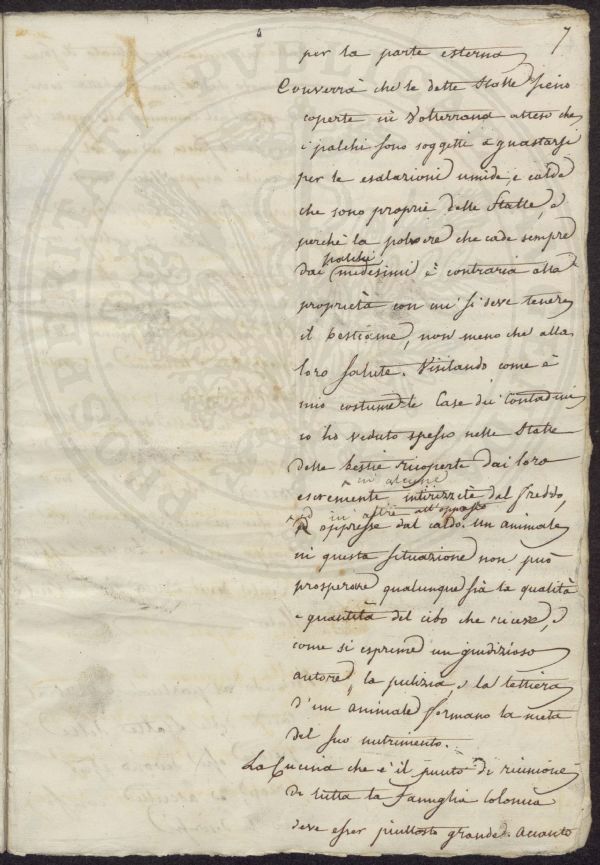 7
per la parte esterna
Converrà che le dette Stalle sieno
coperte in Volterrana atteso che
i palchi sono soggetti a guastarsi
per le esalazioni umide, e calde
che sono proprie delle Stalle, e
perchè la polvere che cade sempre
palchi
dai medesimi è contraria alla
proprietà con cui si deve tenere
il bestiame, non meno che alla
loro salute. Visitando come è
mio costume le Case dei Contadini
io ho veduto spesso nelle Stalle
delle bestie ricoperte dai loro
in alcune
escrementi, intirizzite dal freddo,
ed in altre all'opposto
oppresse dal caldo. Un animale
in questa situazione non può
prosperare qualunque sia la qualità
e quantità del cibo che riceve, e
come si esprime un giudizioso
autore, la pulizia, e la lettiera
d'un animale formano la metà
del suo nutrimento.
La Cucina che è il punto di riunione
di tutta la Famiglia colonica
deve esser piuttosto grande. Accanto
PROSPERITATI PUBLICAE